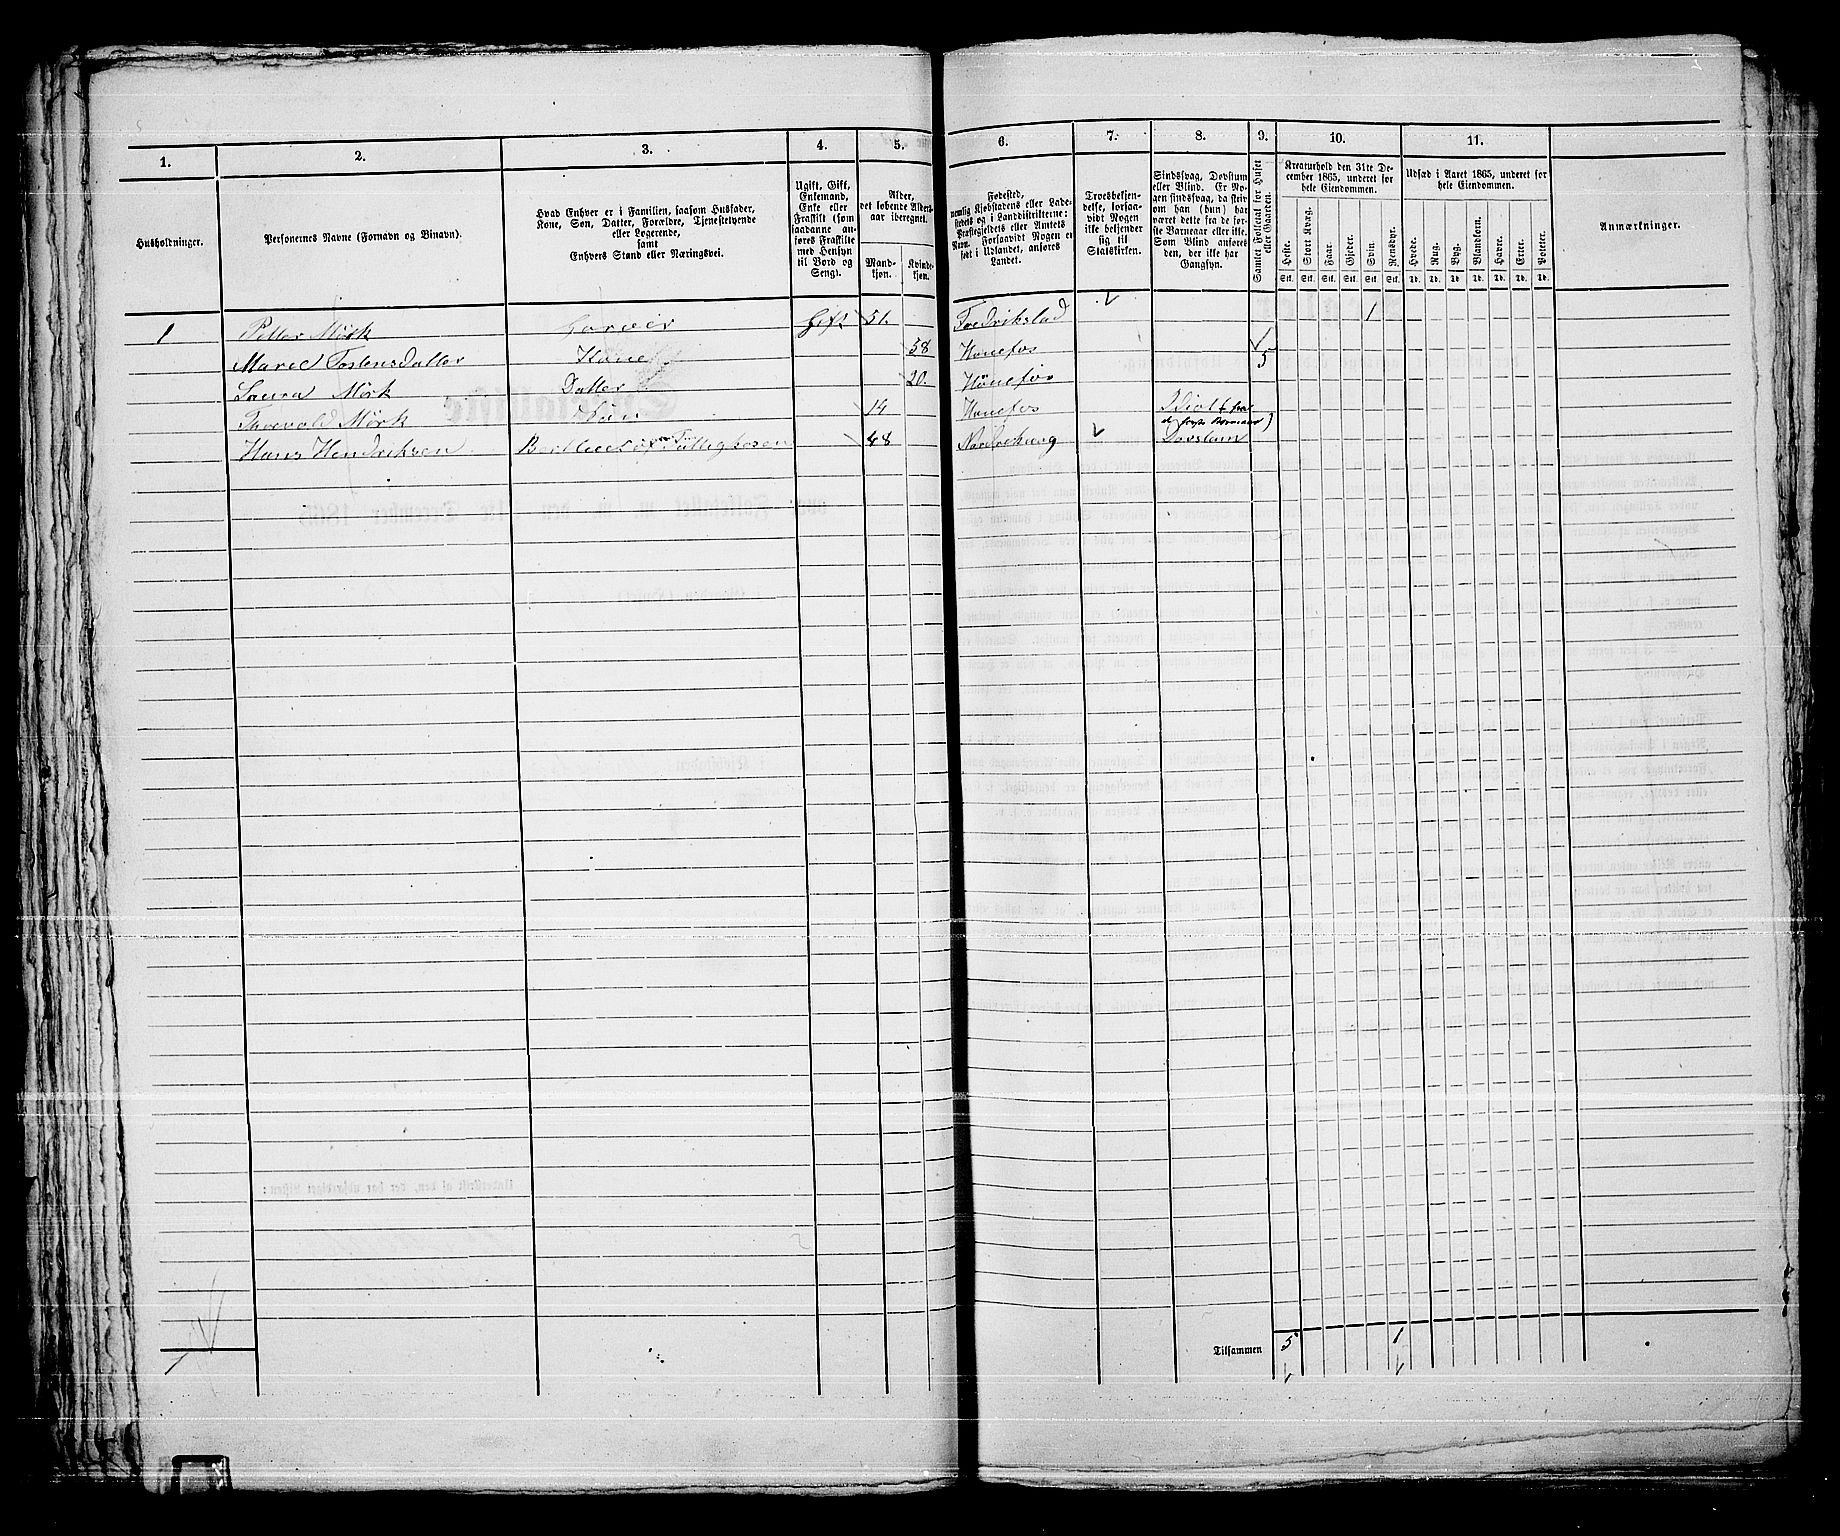 1. 2. 3. 4. 5. 6. 7. 8. 9. 10. 11.
Husholdninger.
Personernes Navne (Fornavn og Binavn).
Hvad Enhver er i Familien, saasom Husfader,
Kone, Søn, Datter, Forældre, Tjenestetyende
eller Logerende,
samt
Enhvers Stand eller Næringsvei.
Ugift, Gift,
Enkemand,
Enke eller
Fraskilt (som
saadanne an-
føres Fraskilte
med Hensyn
til Bord og
Seng).
Alder,
det løbende Alders-
aar iberegnet.
Mand-
kjøn.
Kvinde-
kjøn.
Fødested,
nemlig Kjøbstadens eller Lade-
stedets og i Landdistrikterne:
Præstegjeldets eller Amtets
Navn. Forsaavidt Nogen er
født i Udlandet, anføres
Landet.
Troesbekjen-
delse, forsaa-
vidt Nogen
ikke bekjender
sig til
Statskirken.
Sindssvag, Døvstum
eller Blind. Er No-
gen sindssvag, da skriv
om han (hun) har
været dette fra de før-
ste Barneaar eller ikke.
Som Blind anføres
den, der ikke har
Gangsyn.
Samlet Folketal for Huset
eller Gaarden.
Kreaturhold den 31te De-
cember 1865, underet for
hele Eiendommen.
Heste. Stort Kvæg. Faar. Gjeder. Svin. Rensdyr.
Stk. Stk. Stk. Stk. Stk. Stk.
Udsæd i Aaret 1865, underet for
hele Eiendommen.
Hvede. Rug. Byg. Blandkorn. Havre. Erter. Poteter.
Td. Td. Td. Td. Td. Td. Td.
Anmærkninger.
1 Petter Mörk Farver Gift 51. Fredrikstad 1
Maree Tostensdatter Kone 58 Hönefos 5
Laura Mörk Datter 20. Hönefos
Thorvald Mörk Sön 14 Hönefos Idiot fra
de förste Barneaar)
Hans Hendriksen Fattighesen 48 Nordrehaug Dovstum
Tilsammen 5 1